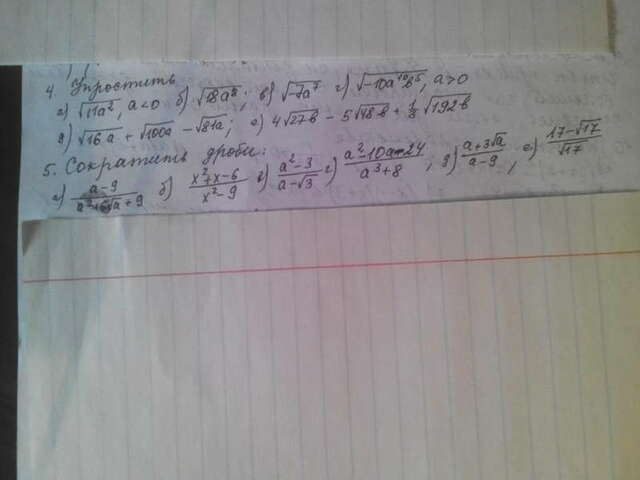 4. Упростить
а) √11a², a<0 б) √18a⁸; в) √-7a⁷ г) √-10a¹⁰b⁵, a>0
д) √16a + √100a - √81a; е) 4√27b - 5√48b + 1/8 √192b
5. Сократить дроби:
а) (a-9)/(a²+6√a+9) б) (x²+x-6)/(x²-9) в) (a²-3)/(a-√3) г) (a²-10a-24)/(a³+8); д) (a+3√a)/(a-9), е) (17-√17)/√17